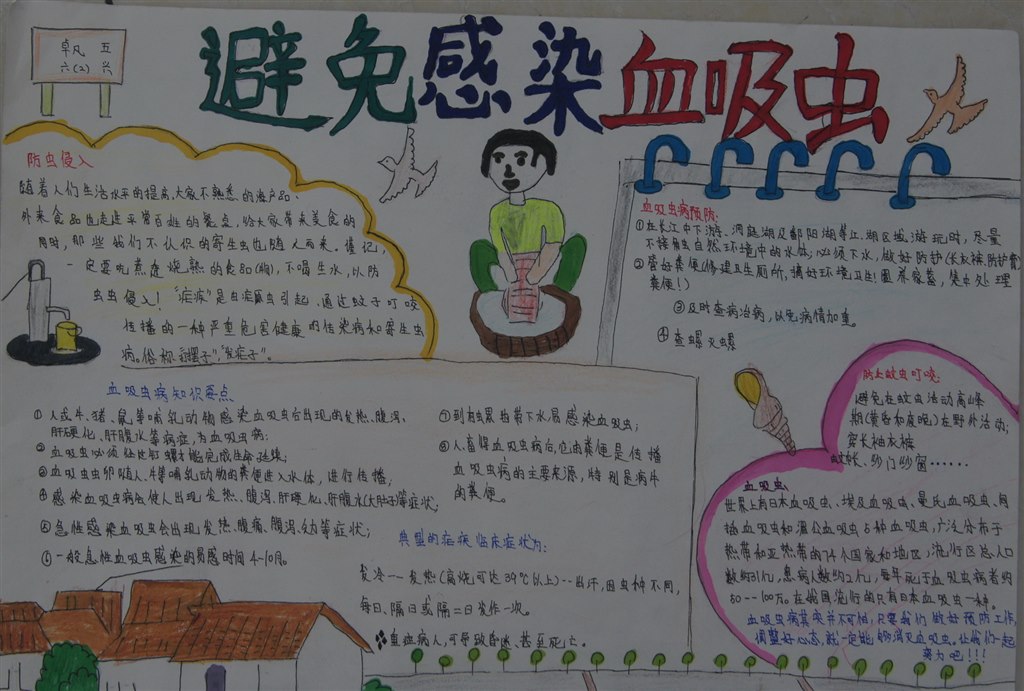 卓凡 五
六(2) 兴
避免感染血吸虫
防虫侵入
随着人们生活水平的提高,大家不熟悉的海产品、
外来食品也走进平常百姓的餐桌,给大家带来美食的
同时,那些我们不认识的寄生虫也随人而来。谨记,
一定要吃煮透烧熟的食品(物),不喝生水,以防
虫虫侵入!"疟疾"是由疟原虫引起、通过蚊子叮咬
传播的一种严重危害健康的传染病和寄生虫
病。俗称"打摆子","发疟子"。
血吸虫病预防:
①在长江中下游、洞庭湖及鄱阳湖等江、湖区域游玩时,尽量
不接触自然环境中的水体,必须下水,做好防护(长衣裤防护膏)
②管好粪便(修建卫生厕所,搞好环境卫生!圈养家畜,集点处理
粪便!)
③及时查病治病,以免病情加重。
④查螺灭螺
血吸虫病知识要点
①人或牛、猪、鼠等哺乳动物感染血吸虫后出现的发热、腹泻、
肝硬化、肝腹水等病症,为血吸虫病;
②血吸虫必须经钉螺才能完成生命延续;
③血吸虫虫卵随人、牛等哺乳动物的粪便进入水体,进行传播,
④感染血吸虫病会使人出现发热、腹泻、肝硬化、肝腹水(大肚子)等症状;
⑤急性感染血吸虫会出现发热、腹痛、腹泻、等症状;
⑥一般急性血吸虫感染的易感时间4-10月。
⑦到有螺的带下水易感染血吸虫;
⑧人畜得血吸虫病后,它的粪便是传播
血吸虫病的主要来源,特别是病牛
的粪便。
典型的疟疾临床症状为:
发冷--发热(高烧可达39℃以上)--出汗,因虫种不同,
每日、隔日或隔二日发作一次。
重症病人,可导致昏迷、甚至死亡。
防止蚊虫叮咬:
避免在蚊虫活动高峰
期(黄昏和夜晚)在野外活动;
穿长袖衣裤
蚊帐、纱门纱窗……
血吸虫
世界上有日本血吸虫、埃及血吸虫、曼氏血吸虫、间
插血吸虫和湄公血吸虫5种血吸虫,广泛分布于
热带和亚热带的74个国家和地区,流行区总人口
数约31亿,患病人数约2亿,每年死于血吸虫病者约
50--100万。在我国流行的只有日本血吸虫一种。
血吸虫病其实并不可怕,只要我们做好预防工作,
调整好心态,就一定能够消灭血吸虫,让我们一起
努力吧!!!